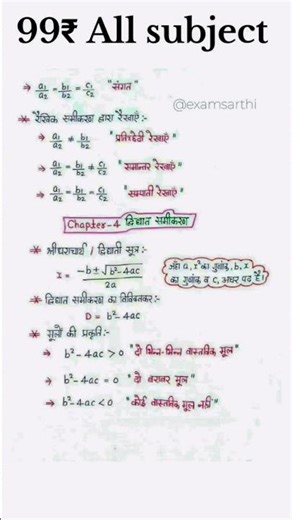 99₹ All subject
→ a₁/a₂ = b₁/b₂ = c₁/c₂ "संगत"
@examsarthi
* रैखिक समीकरण द्वारा रेखाएं:-
→ a₁/a₂ ≠ b₁/b₂ "प्रतिच्छेदी रेखाएं"
→ a₁/a₂ = b₁/b₂ ≠ c₁/c₂ "समान्तर रेखाएं"
→ a₁/a₂ = b₁/b₂ = c₁/c₂ "संपाती रेखाएं"
Chapter-4 द्विघात समीकरण
* श्रीधराचार्य / द्विघाती सूत्र:-
x = -b ± √b²-4ac / 2a
जहाँ a, x² का गुणांक, b, x
का गुणांक व c, अचर पद है।
* द्विघात समीकरण का विविक्तकर:-
D = b²-4ac
* मूलों की प्रकृति:-
→ b²-4ac > 0 "दो भिन्न-भिन्न वास्तविक मूल"
→ b²-4ac = 0 "दो बराबर मूल"
→ b²-4ac < 0 "कोई वास्तविक मूल नहीं"